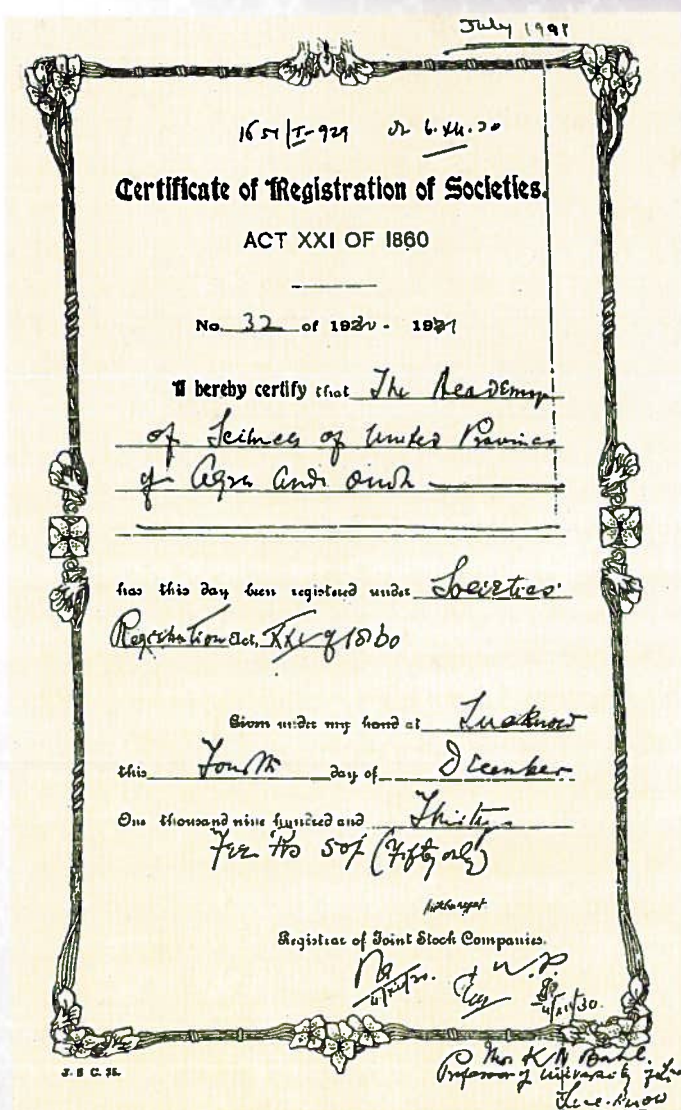 July 1998
1651/I-929 d/ 6.XII.30
Certificate of Registration of Societies.
ACT XXI OF 1860
No. 32 of 1930 - 1931
I hereby certify that The Academy
of Sciences of United Provinces
of Agra and Oudh
has this day been registered under Societies
Registration Act, XXI of 1860
Given under my hand at Lucknow
this Fourth day of December
One thousand nine hundred and Thirty
Fee Rs 50/- (Fifty only)
Registrar of Joint Stock Companies.
U.P.
4/XII/30.
J. S C. 35.
K N Bahl.
Professor of University of
Lucknow